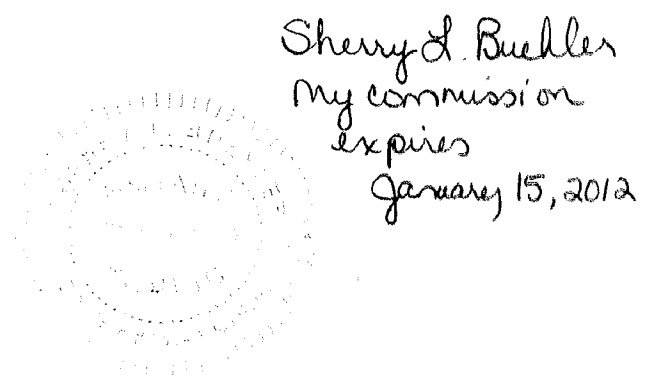 Sherry L. Buehler
My commission
expires
January 15, 2012